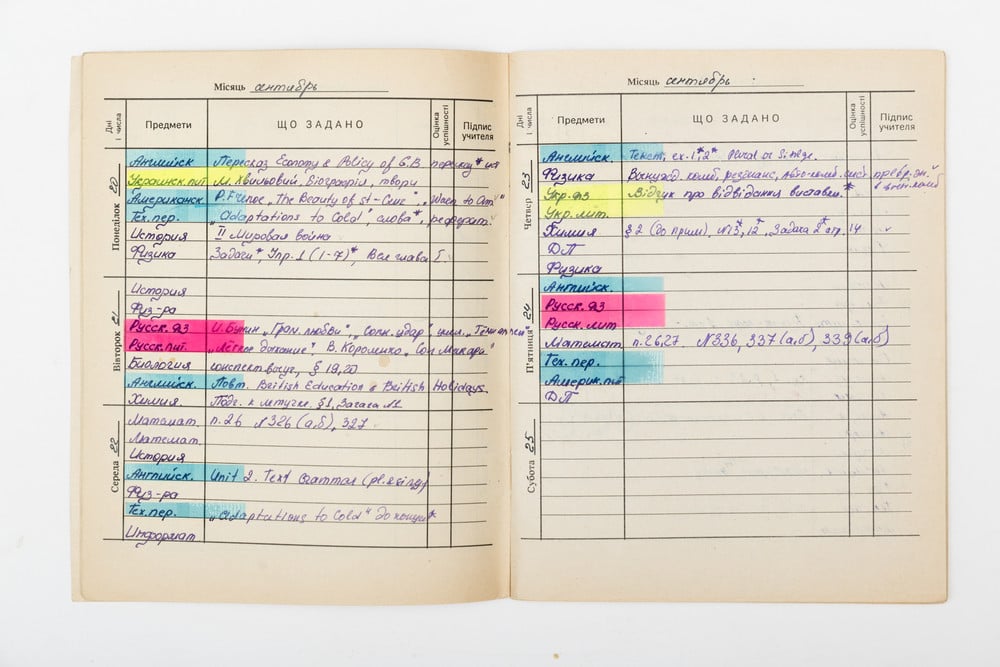 Місяць сентябрь
Дні і числа Предмети ЩО ЗАДАНО Оцінка успішності Підпис учителя
Понеділок 20
Английск Пересказ Economy & Policy of G.B.
Украинск.лит М. Хвильовий, Біографія, твори
Американск The Beauty of
Тех.пер. „Adaptations to Cold" слова*, реферат.
История II Мировая война
Физика Задачи*, Упр. 1 (1-7)*, Вся глава
Вівторок 21
История
Физ-ра
Русск.яз И. Бунин „Грам. любви", „Солн. удар"
Русск.лит. „Лёгкое дыхание" В. Короленко, Сон Макара"
Биология конспект §19,20
Английск. Повт. British Education & British Holidays.
Химия Подг. к летучке. §1, Задача №1
Середа 22
Математ. п.26 №326 (а,б), 327
Математ.
История
Английск. Unit 2. Text Grammar
Физ-ра
Тех.пер. „Adaptations to Cold"
Информат
Місяць сентябрь
Дні і числа Предмети ЩО ЗАДАНО Оцінка успішності Підпис учителя
Четвер 23
Английск. Текст, ex. 1*, 2* Plural or
Физика Вынужд. колеб, резонанс,
Укр.яз Відгук про відвідання виставки*
Укр.лит.
Химия §2 (до прим), Задача 2 стр. 14
ДП
Физика
П'ятниця 24
Английск.
Русск.яз
Русск.лит
Математ. п.26,27 №336, 337(а,б), 339(а,б)
Тех.пер.
Америк.лит
ДП
Субота 25